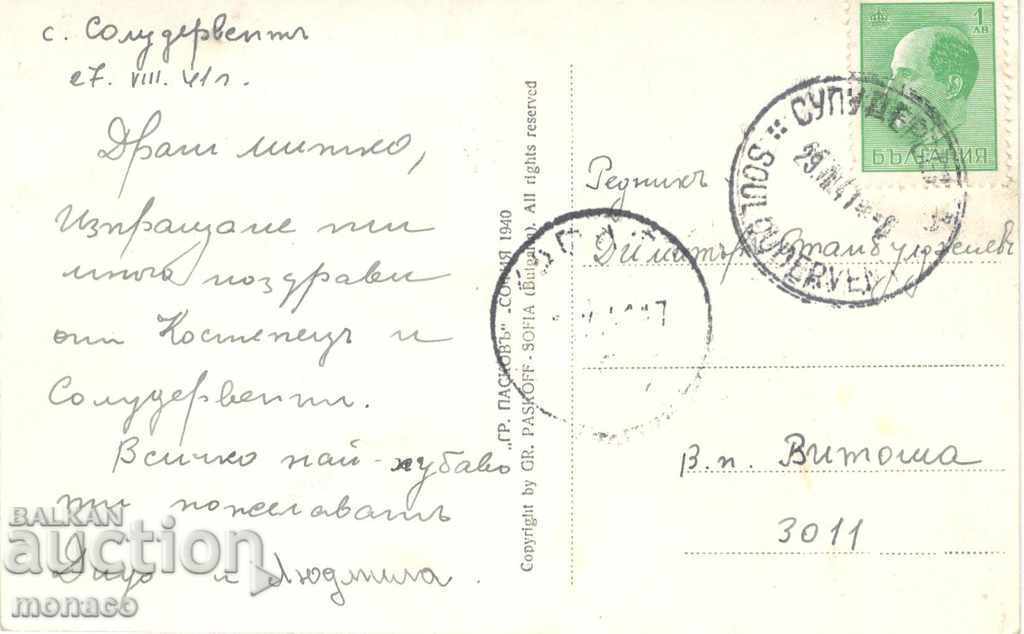 с. Солудервентъ
27. VIII. 41 г.
Драги Митко,
Изпращаме ти
много поздрави
от Костенецъ и
Солудервент.
Всичко най-хубаво
ти пожелаватъ
и Людмила.
„ГР. ПАСКОВЪ“ - СОФИЯ 1940
Copyright by GR. PASKOFF - SOFIA (Bulgaria). All rights reserved
1
ЛВ
БЪЛГАРИЯ
СУЛУДЕРВЕНТ
29.VIII.41
SOULOUDERVENT
Редникъ
Димитъръ Стамбулджиевъ
В.п. Витоша
3011
BALKAN
auction
monaco